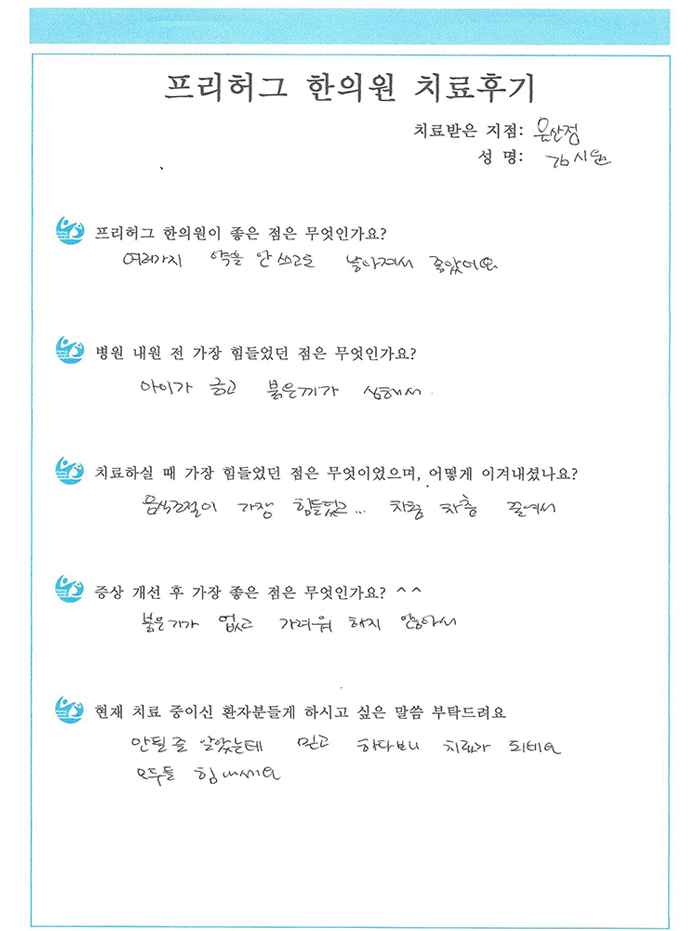 프리허그 한의원 치료후기
치료받은 지점:
성 명: 김시원
프리허그 한의원이 좋은 점은 무엇인가요?
여러가지 약을 안 쓰고도 낳아져서 좋았어요
병원 내원 전 가장 힘들었던 점은 무엇인가요?
아이가 긁고 붉은끼가 심해서
치료하실 때 가장 힘들었던 점은 무엇이었으며, 어떻게 이겨내셨나요?
음식조절이 가장 힘들었고... 차츰 차츰 줄여서
증상 개선 후 가장 좋은 점은 무엇인가요? ^^
붉은기가 없고 가려워 하지 않아서
현재 치료 중이신 환자분들게 하시고 싶은 말씀 부탁드려요
안될 줄 알았는데 믿고 하다보니 치료가 되네요
모두들 힘내세요